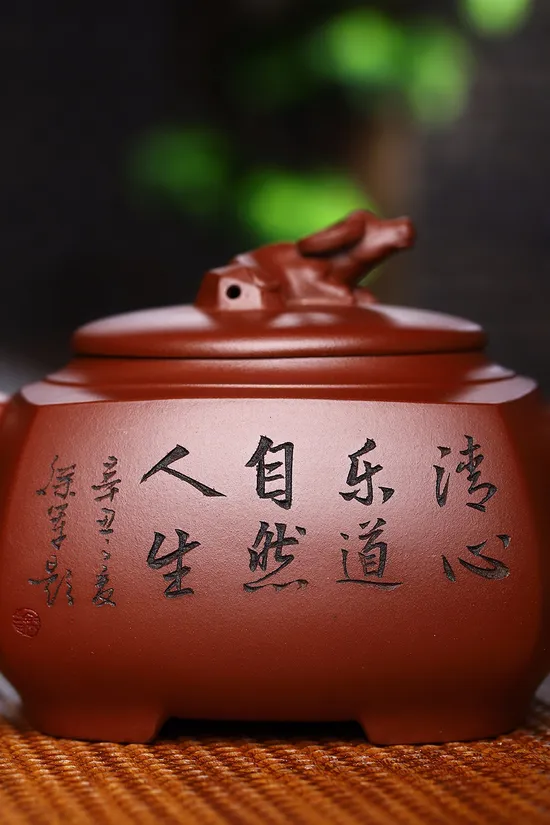 清心
乐道
自然
人生
辛丑之夏